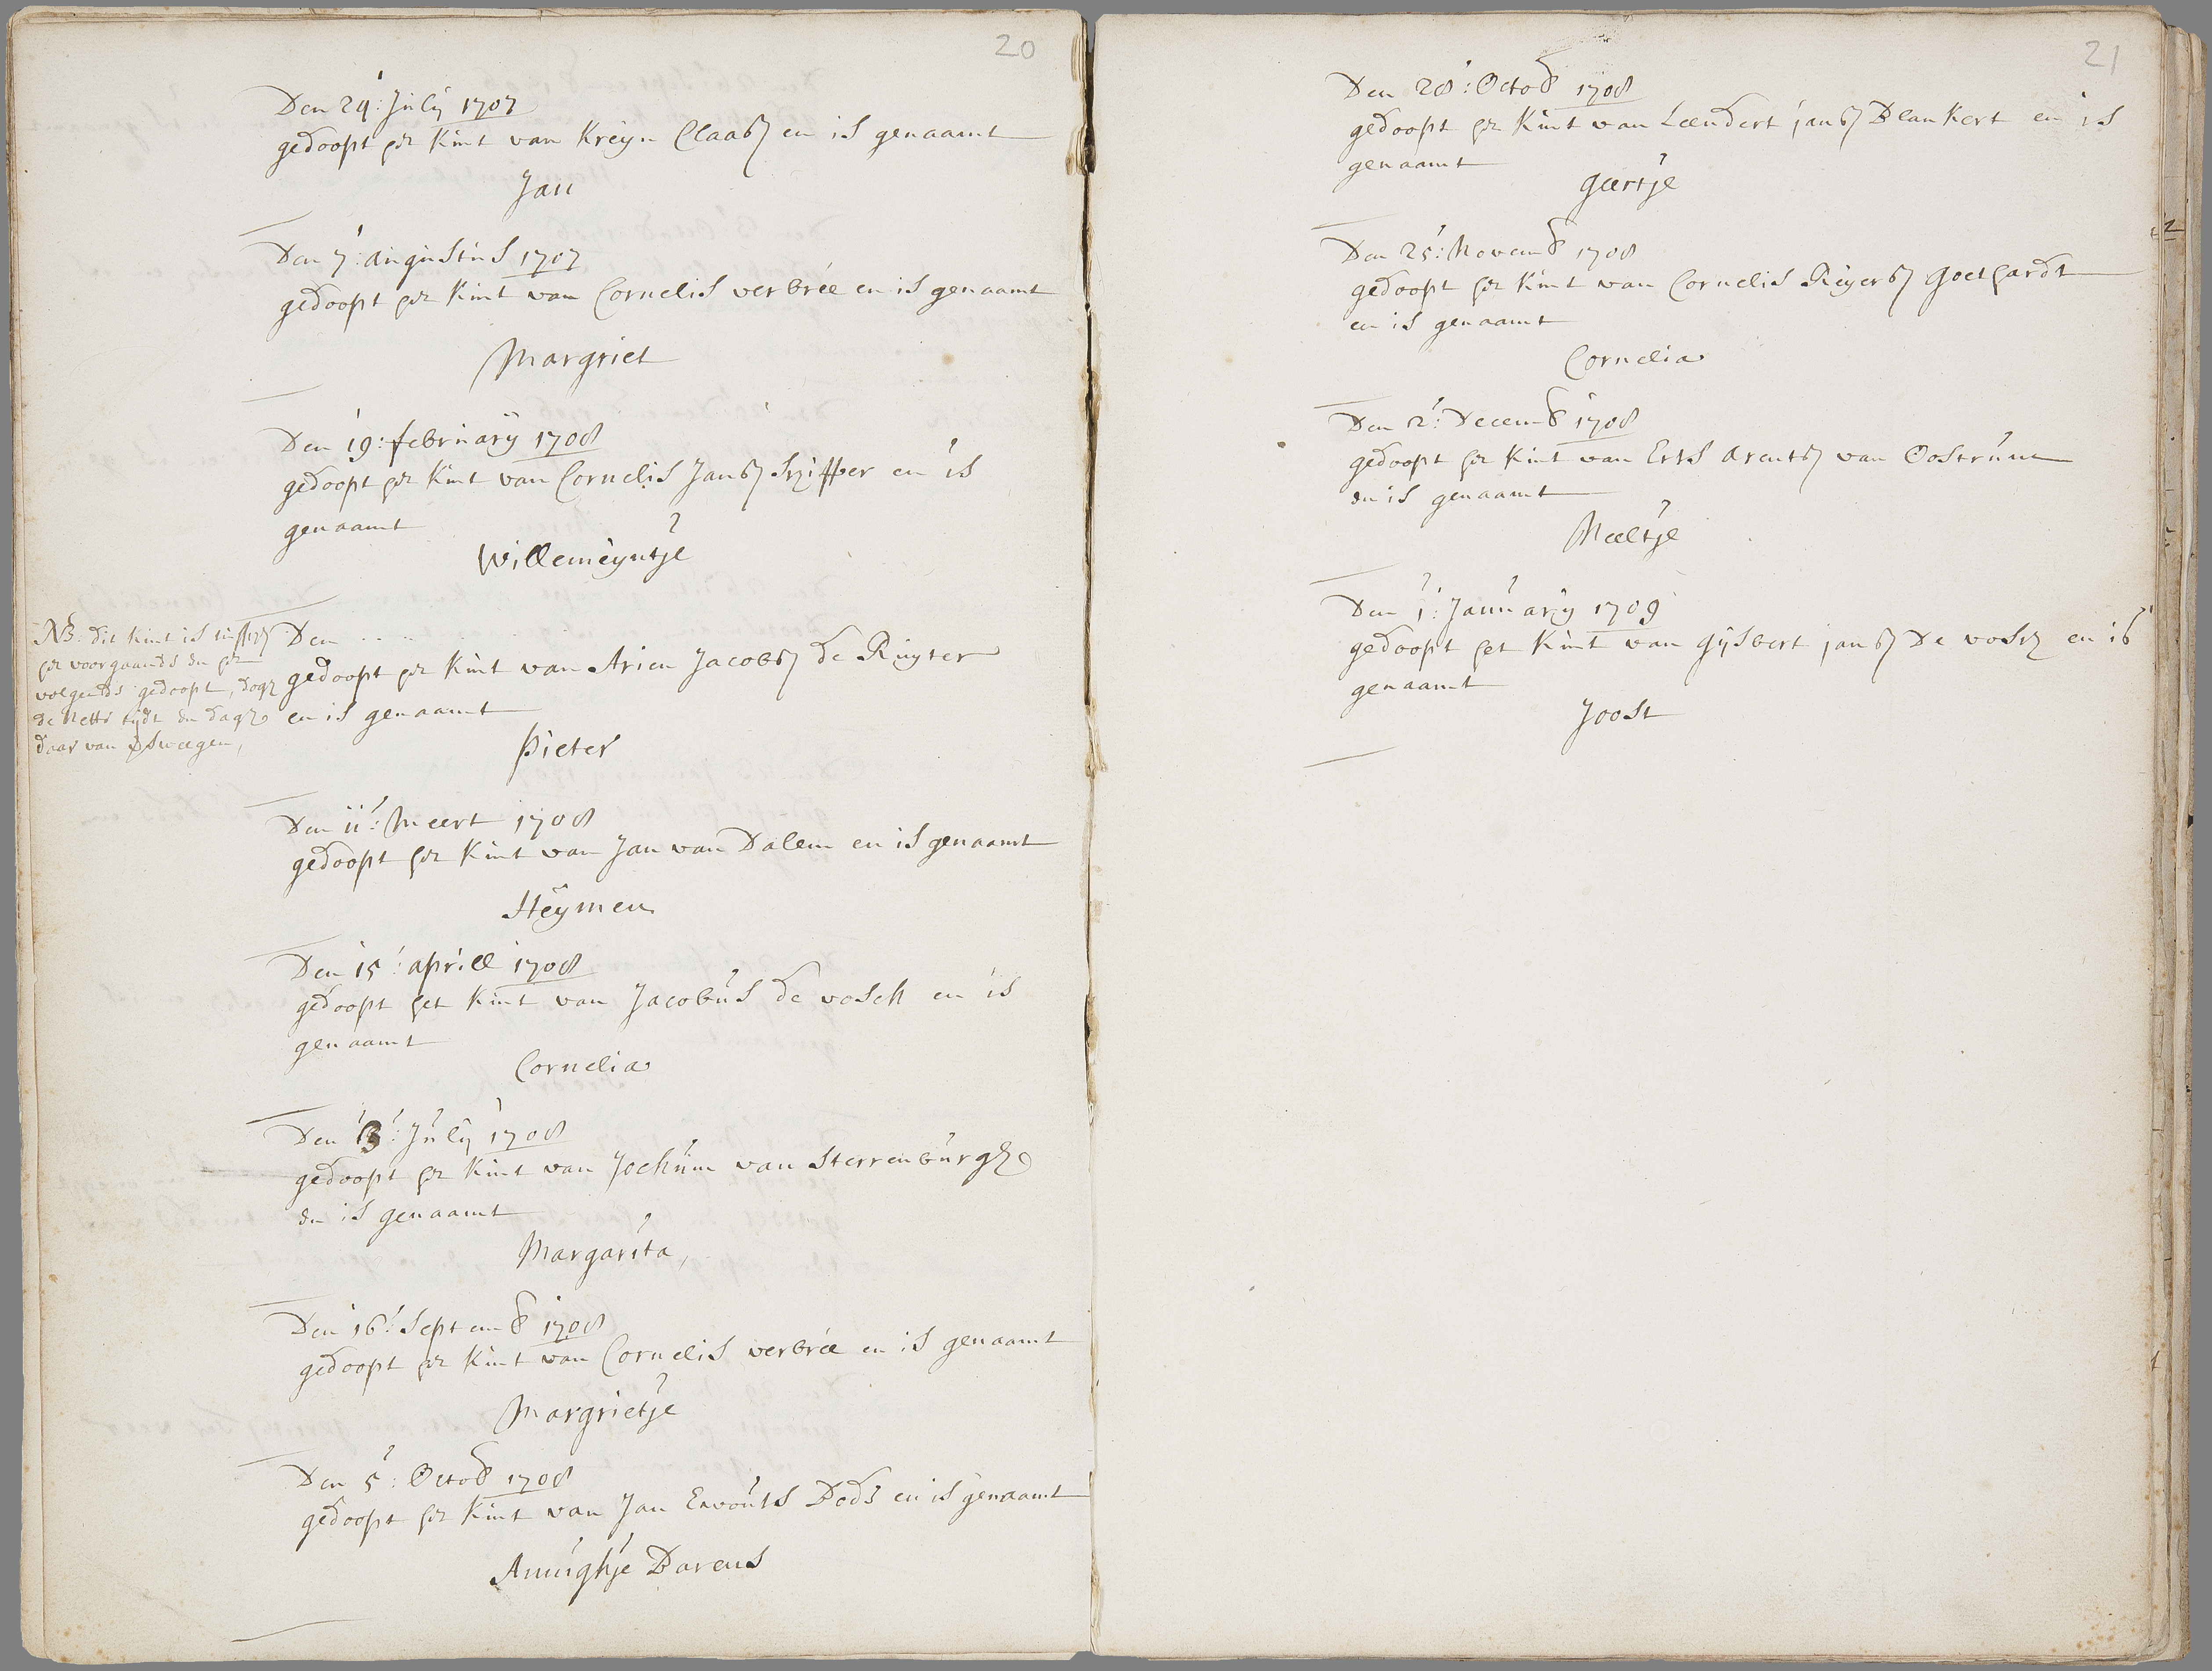 20
Den 24: July 1707
gedoopt het Kint van Kreyn Claasz en is genaamt
Jan
Den 7: augustus 1707
gedoopt het Kint van Cornelis verbrée en is genaamt
Margriet
Den 19: february 1708
gedoopt het Kint van Cornelis Jansz Schipper en is
genaamt
Willemeyntje
NB: dit kint is tusschen
het voorgaande en het
volgende gedoopt, dogh
de nette tijdt en dagh
daar van
Den . . . . .
gedoopt het Kint van Arien Jacobsz de Ruyter
en is genaamt
Pieter
Den 11: Meert 1708
gedoopt het Kint van Jan van Dalem en is genaamt
Heymen
Den 15: aprill 1708
gedoopt het Kint van Jacobus de vosch en is
genaamt
Cornelia
Den 13: July 1708
gedoopt het Kint van Jochum van Sterrenburgh
en is genaamt
Margarita,
Den 16: Septemb 1708
gedoopt het Kint van Cornelis verbrée en is genaamt
Margrietje
Den 5: Octob 1708
gedoopt het Kint van Jan Ewouts en is genaamt
Annighje Barens
21
Den 28: Octob 1708
gedoopt het Kint van Leendert jansz Blankert en is
genaamt
Geertje
Den 25: Novemb 1708
gedoopt het Kint van Cornelis Reyersz Goethardt
en is genaamt
Cornelia
Den 2: Decemb 1708
gedoopt het Kint van Arentsz van Oostrum
en is genaamt
Neeltje
Den 1: January 1709
gedoopt het Kint van Gijsbert jansz De vosch en is
genaamt
Joost